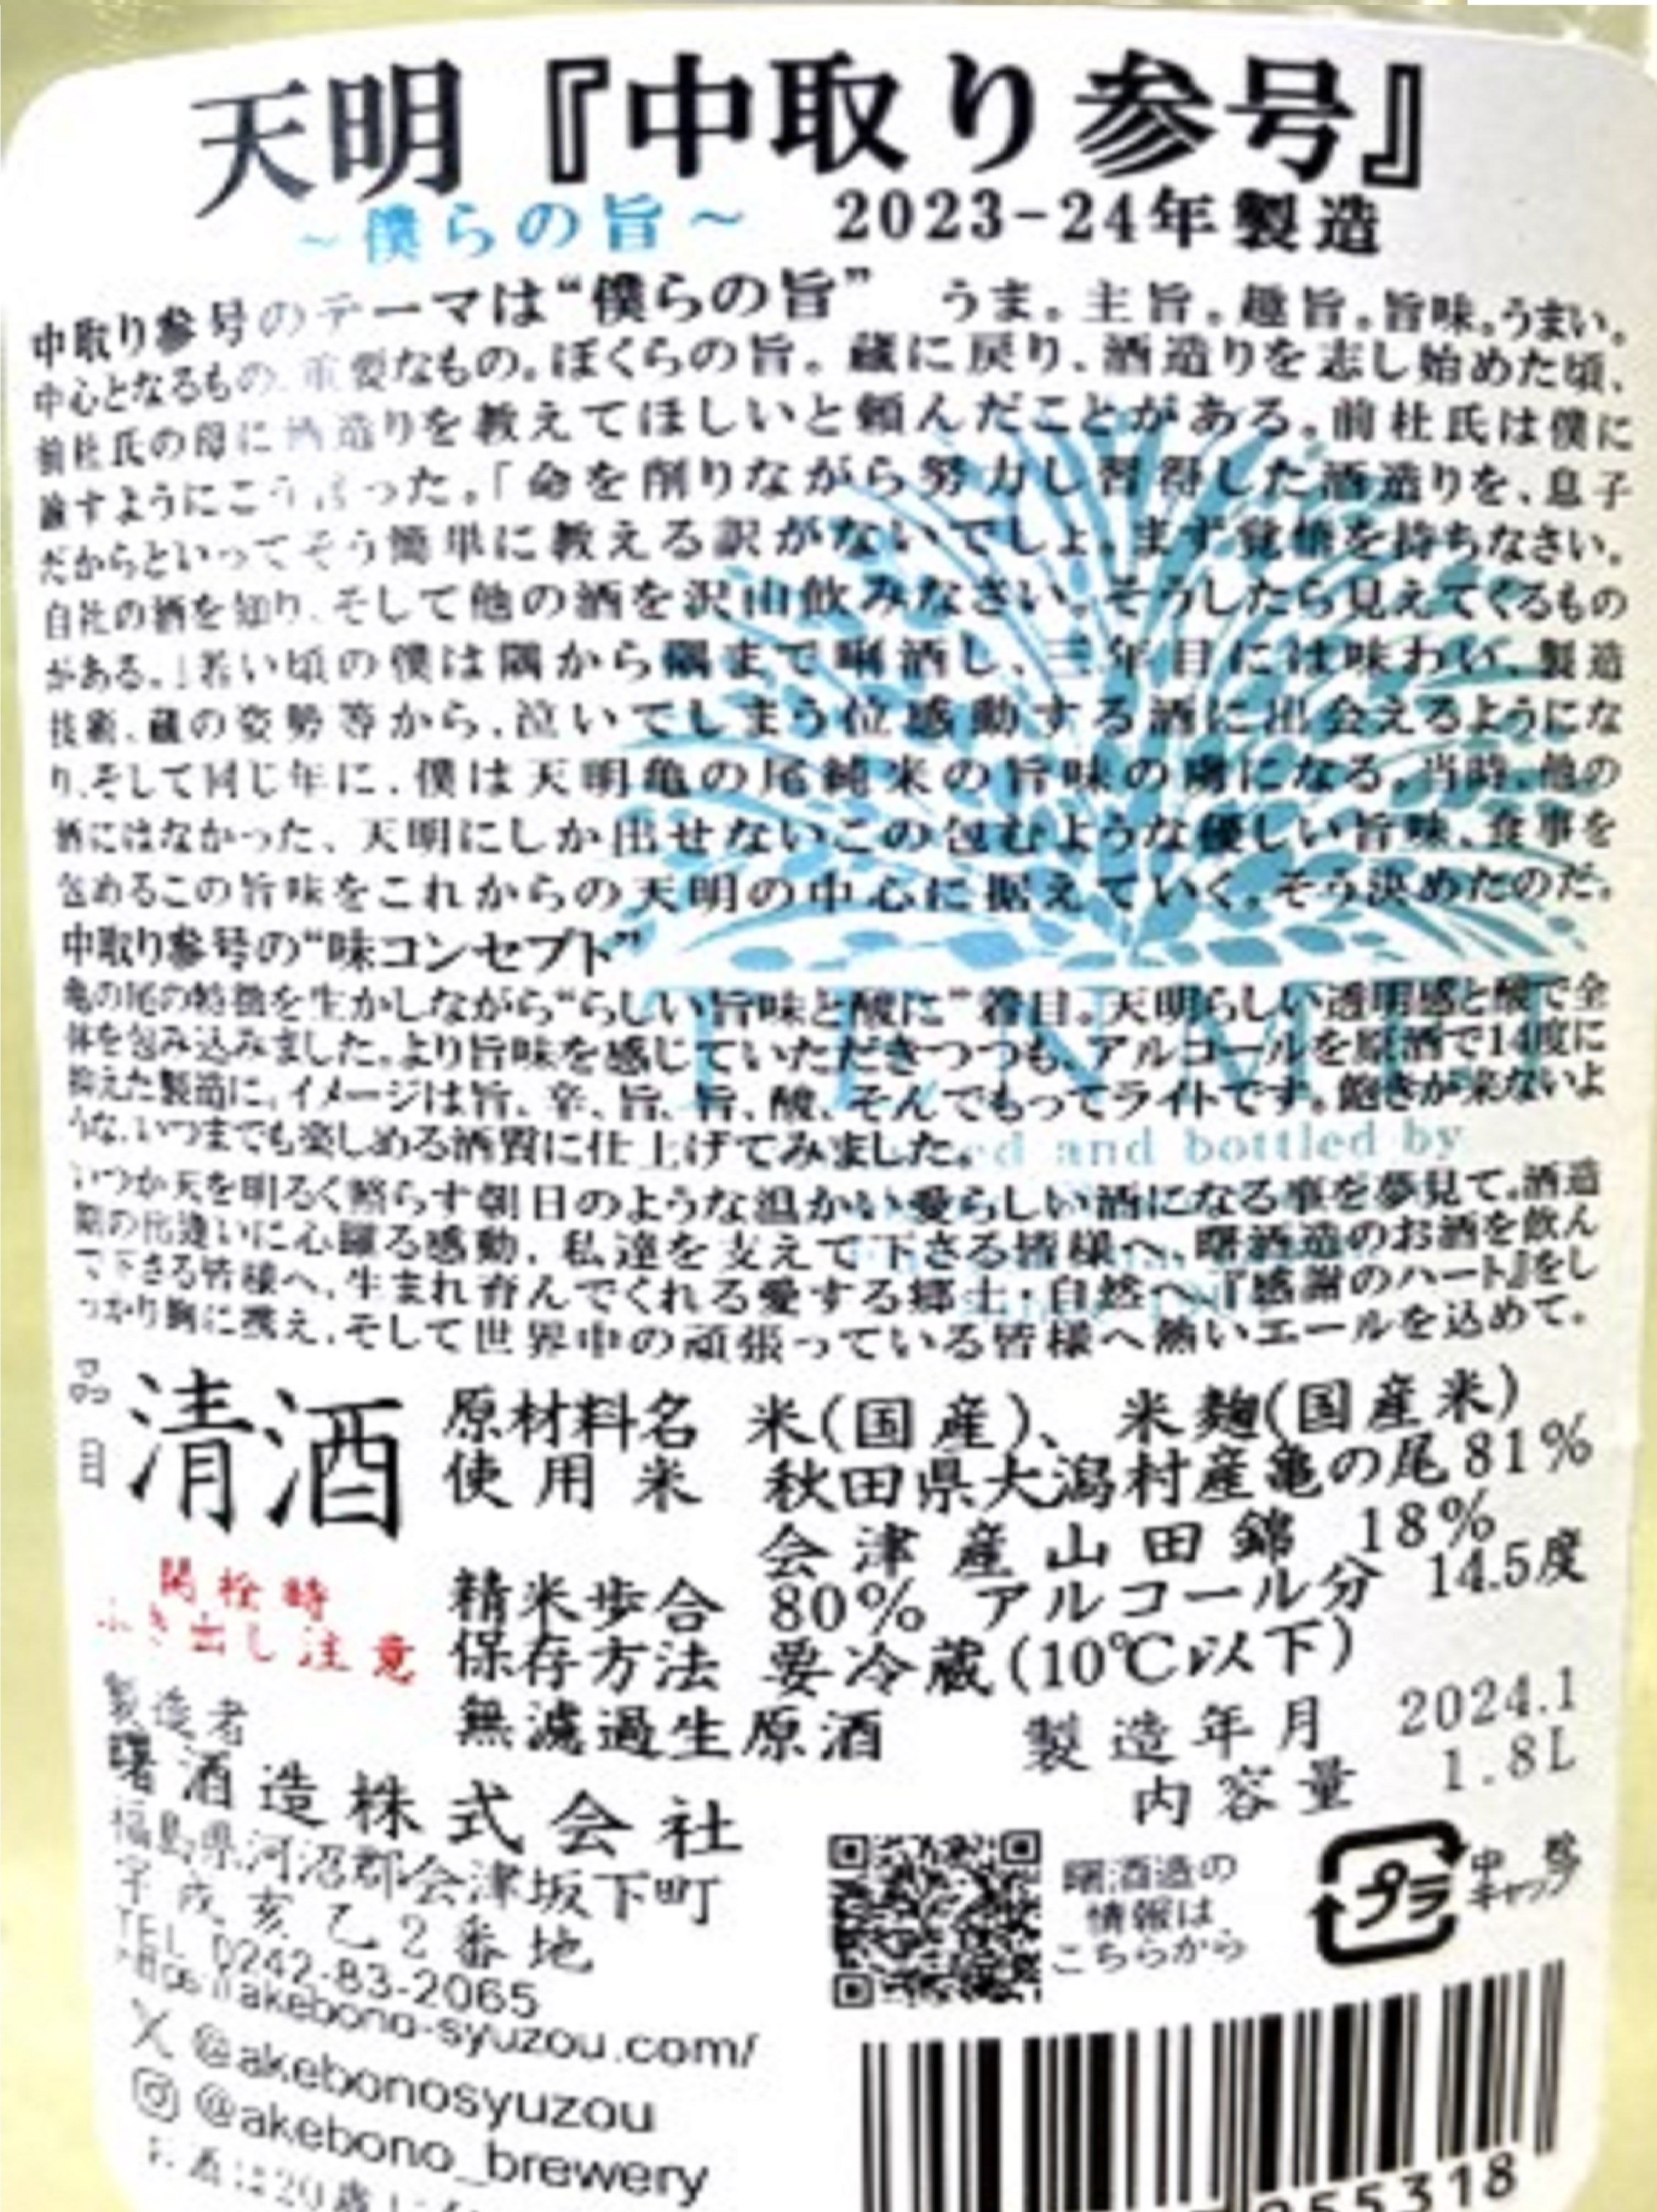 天明『中取り参号』
~僕らの旨~ 2023-24年製造
中取り参号のテーマは“僕らの旨” うま。主旨。趣旨。旨味。うまい。
中心となるもの、重要なもの。ぼくらの旨。蔵に戻り、酒造りを志し始めた頃、
前杜氏の母に酒造りを教えてほしいと頼んだことがある。前杜氏は僕に
諭すようにこう言った。「命を削りながら努力し習得した酒造りを、息子
だからといってそう簡単に教える訳がないでしょ。まず覚悟を持ちなさい。
自社の酒を知り、そして他の酒を沢山飲みなさい。そうしたら見えてくるもの
がある。」若い頃の僕は隅から隅まで唎酒し、三年目には味わい、製造
技術、蔵の姿勢等から、泣いてしまう位感動する酒に出会えるようにな
り、そして同じ年に、僕は天明亀の尾純米の旨味の虜になる。当時、他の
酒にはなかった、天明にしか出せないこの包むような優しい旨味、食事を
包めるこの旨味をこれからの天明の中心に据えていく。そう決めたのだ。
中取り参号の“味コンセプト”
亀の尾の特徴を生かしながら“らしい旨味と酸に”着目。天明らしい透明感と酸で全
体を包み込みました。より旨味を感じていただきつつも、アルコールを原酒で14度に
抑えた製造に。イメージは旨、辛、旨、旨、酸、そんでもってライトです。飽きが来ないよ
うな、いつまでも楽しめる酒質に仕上げてみました。
ed and bottled by
TENMEI
いつか天を明るく照らす朝日のような温かい愛らしい酒になる事を夢見て。酒造
期の出逢いに心躍る感動、私達を支えて下さる皆様へ、曙酒造のお酒を飲ん
で下さる皆様へ、生まれ育んでくれる愛する郷土・自然へ『感謝のハート』をし
っかり胸に携え、そして世界中の頑張っている皆様へ熱いエールを込めて。
品目 清酒
原材料名 米(国産)、米麹(国産米)
使用米 秋田県大潟村産亀の尾81%
会津産山田錦 18%
精米歩合 80% アルコール分 14.5度
保存方法 要冷蔵(10℃以下)
開栓時
ふき出し注意
無濾過生原酒 製造年月 2024.1
内容量 1.8L
製造者
曙酒造株式会社
福島県河沼郡会津坂下町
字戌亥乙2番地
TEL 0242-83-2065
https://akebono-syuzou.com/
@akebonosyuzou
@akebono_brewery
曙酒造の
情報は
こちらから
プラ
中栓
キャップ
55318